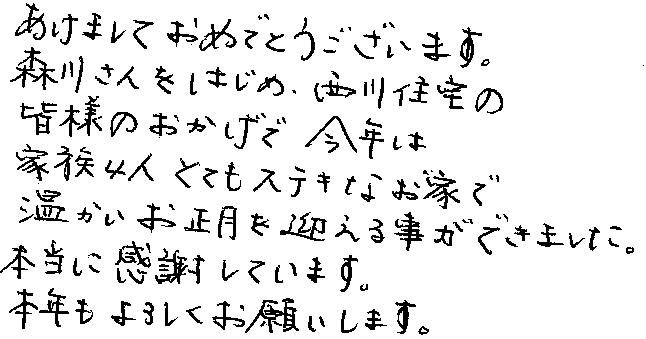 あけましておめでとうございます。
森川さんをはじめ、西川住宅の
皆様のおかげで 今年は
家族4人 とてもステキなお家で
温かいお正月を迎える事ができました。
本当に感謝しています。
本年もよろしくお願いします。